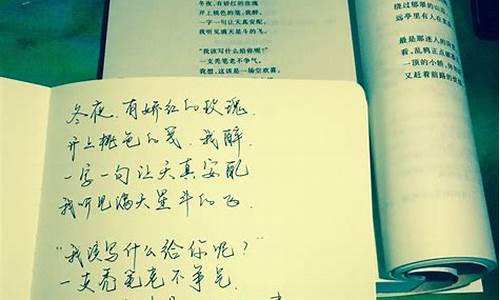 冬夜，有娇红的玫瑰
开上桃色的笺，我醉，
一字一句让天真安配，
我听见满天星斗的飞。
“我该写什么给你呢？”
一支秃笔老不争气，
我想，这该是一场空欢喜，
绕过郁翠的山
远亭里有人在
最是那迷人的
看，乱鸦正点破
一顶的小轿，
又赶着前路的
冬夜，有娇红的玫瑰，
开上桃色的笺，我醉，
一字一句让天真安配
我听见满天星斗的飞。
“我该写什么给你呢？”
一支秃笔老不争气，